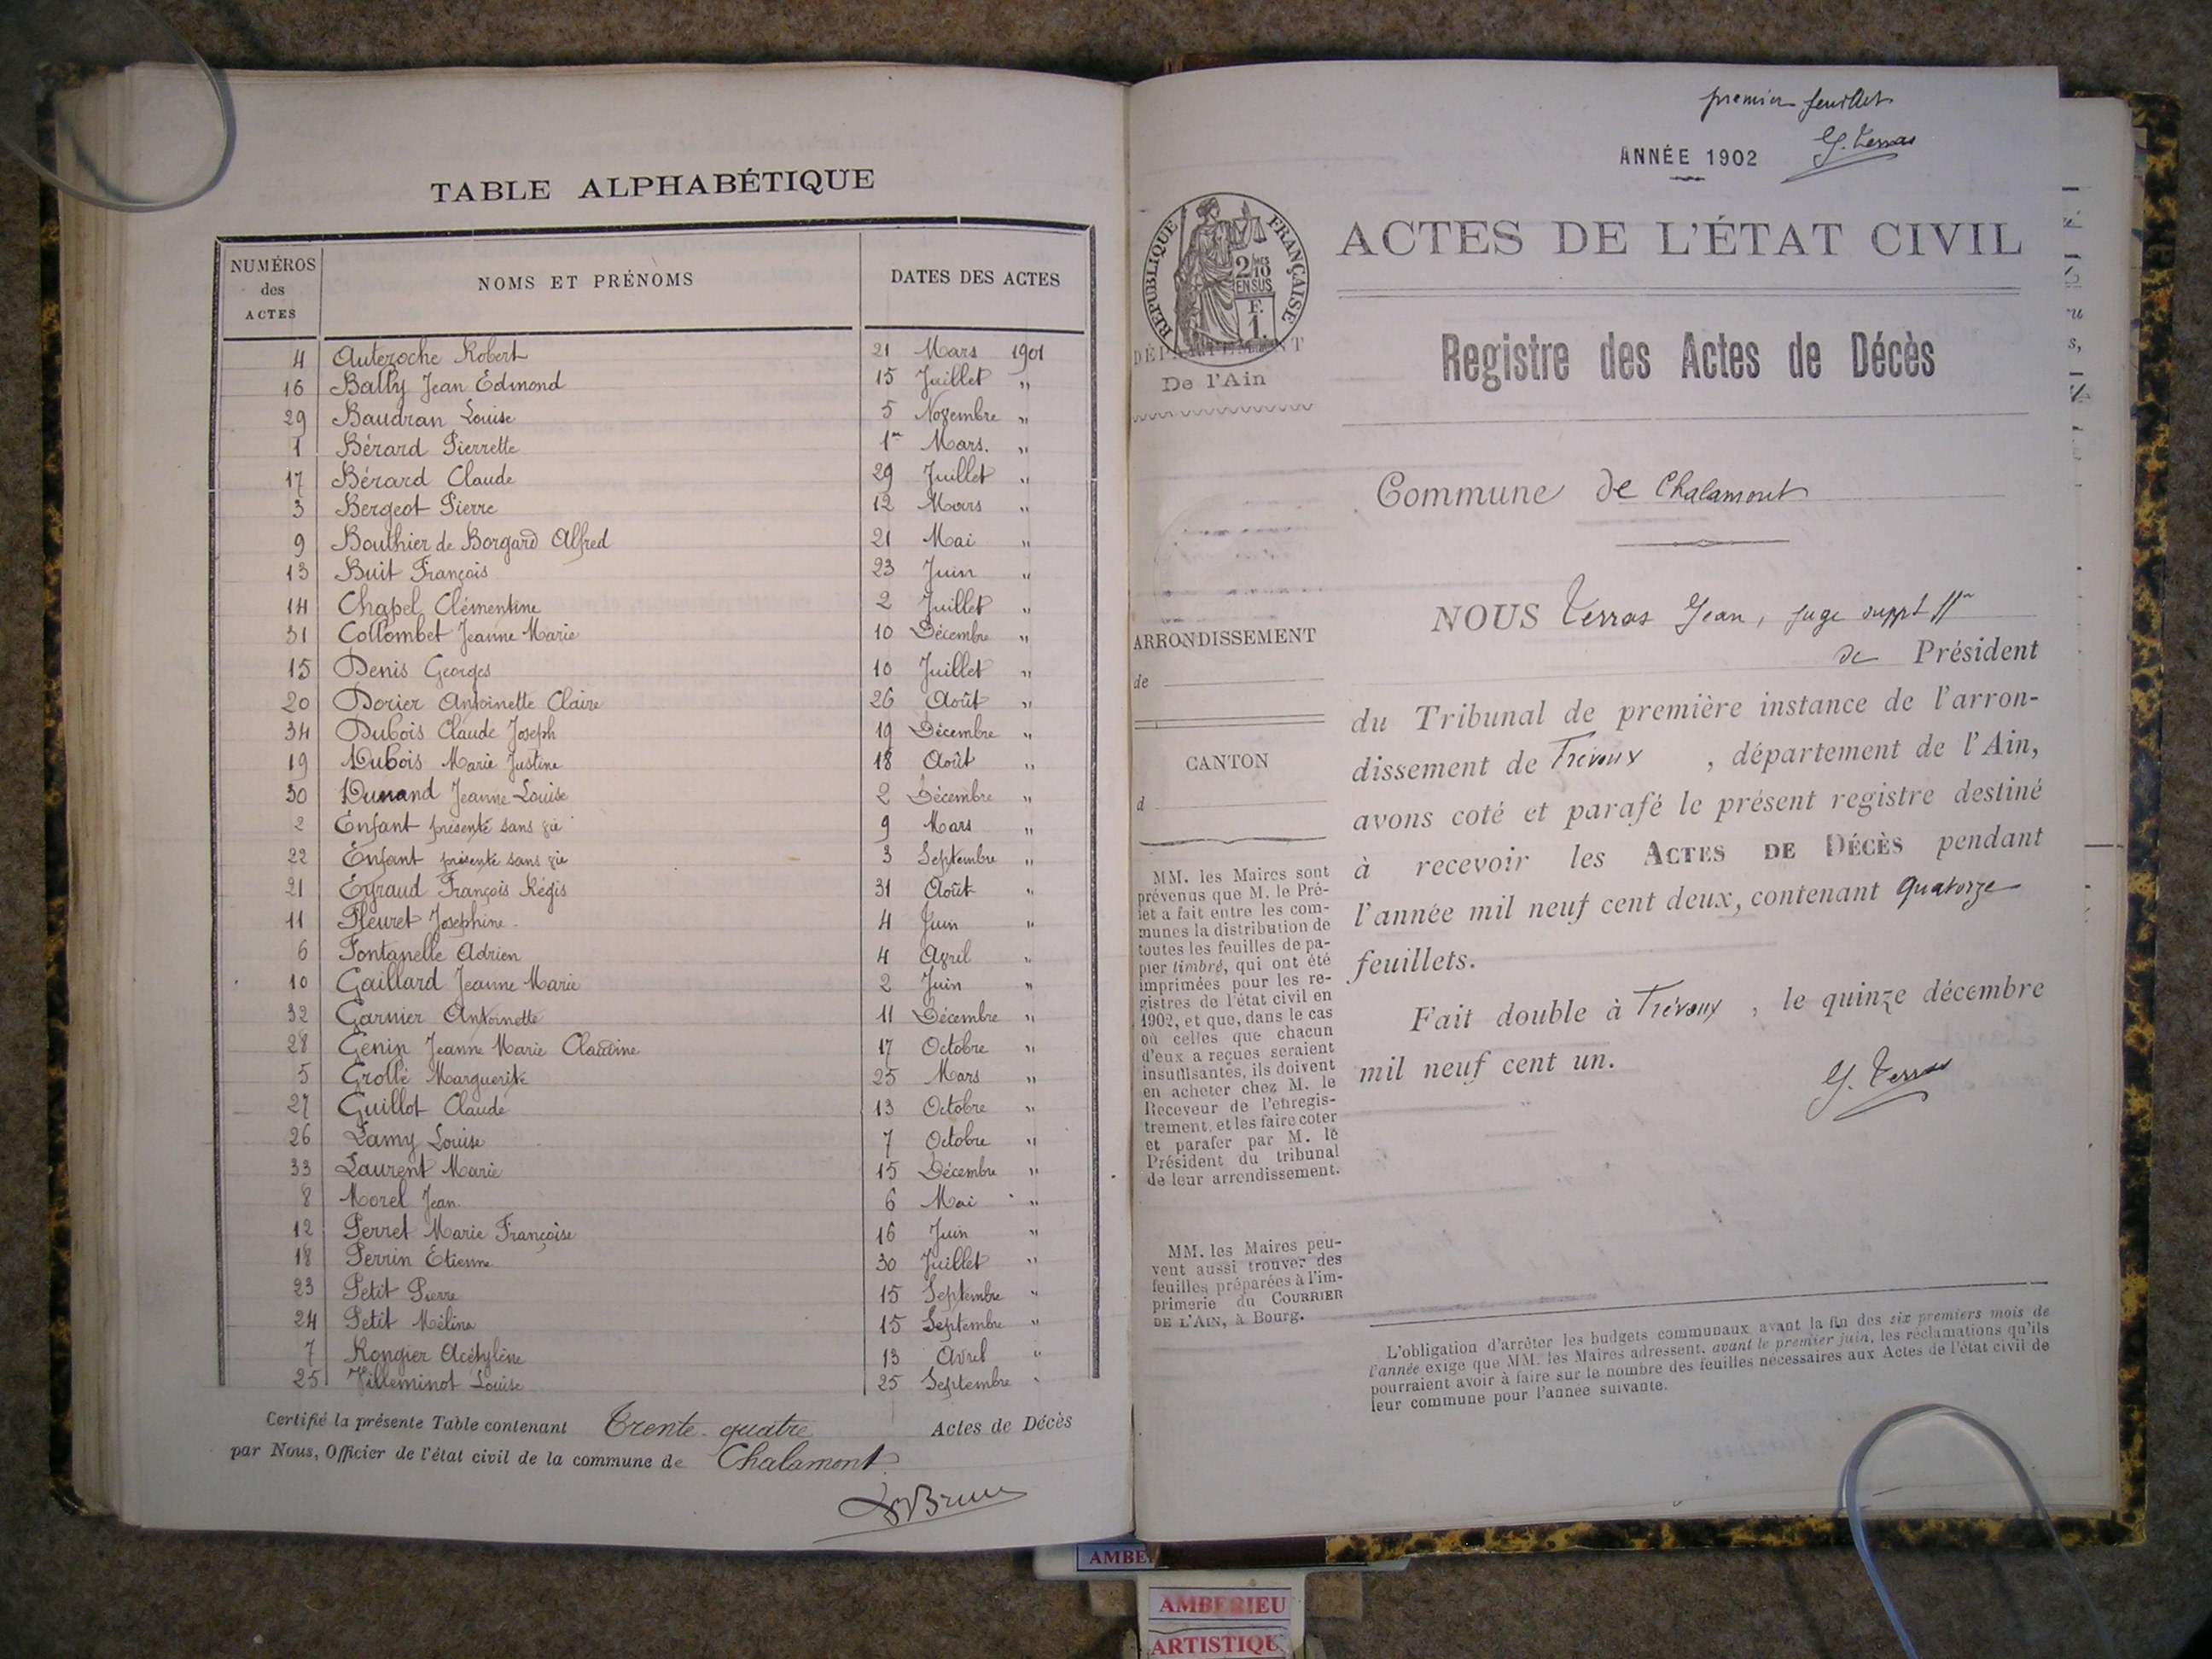 TABLE ALPHABÉTIQUE
NUMÉROS des ACTES NOMS ET PRÉNOMS DATES DES ACTES
4 Auteroche Robert 21 Mars 1901
16 Bally Jean Edmond 15 Juillet "
29 Baudran Louise 5 Novembre "
1 Bérard Pierrette 1er Mars. "
17 Bérard Claude 29 Juillet "
3 Bergeot Pierre 12 Mars "
9 Bouthier de Borgard Alfred 21 Mai "
13 Buit François 23 Juin "
14 Chapel Clémentine 2 Juillet "
31 Collombet Jeanne Marie 10 Décembre "
15 Denis Georges 10 Juillet "
20 Dorier Antoinette Claire 26 Août "
34 Dubois Claude Joseph 19 Décembre "
19 Dubois Marie Justine 18 Août "
30 Dunand Jeanne Louise 2 Décembre "
2 Enfant présenté sans vie 9 Mars "
22 Enfant présenté sans vie 3 Septembre "
21 Eyraud François Régis 31 Août "
11 Fleuret Joséphine. 4 Juin "
6 Fontanelle Adrien 4 Avril "
10 Gaillard Jeanne Marie 2 Juin "
32 Garnier Antoinette 11 Décembre "
28 Genin Jeanne Marie Claudine 17 Octobre "
5 Grollé Marguerite 25 Mars "
27 Guillot Claude 13 Octobre "
26 Lamy Louise 7 Octobre "
33 Laurent Marie 15 Décembre "
8 Morel Jean. 6 Mai "
12 Perret Marie Françoise 16 Juin "
18 Perrin Etienne 30 Juillet "
23 Petit Pierre 15 Septembre "
24 Petit Mélina 15 Septembre "
7 Rongier Acétylène 13 Avril "
25 Villeminot Louise 25 Septembre "
Certifié la présente Table contenant Trente-quatre Actes de Décès
par Nous, Officier de l'état civil de la commune de Chalamont.
premier feuillet
J. Terras
ANNÉE 1902
RÉPUBLIQUE FRANÇAISE
2/10
EN SUS
F.
1.
DÉPARTEMENT
De l'Ain
ACTES DE L'ÉTAT CIVIL
Registre des Actes de Décès
Commune de Chalamont
ARRONDISSEMENT
de
CANTON
d
MM. les Maires sont
prévenus que M. le Pré-
fet a fait entre les com-
munes la distribution de
toutes les feuilles de pa-
pier timbré, qui ont été
imprimées pour les re-
gistres de l'état civil en
1902, et que, dans le cas
où celles que chacun
d'eux a reçues seraient
insuffisantes, ils doivent
en acheter chez M. le
Receveur de l'enregis-
trement, et les faire coter
et parafer par M. le
Président du tribunal
de leur arrondissement.
MM. les Maires peu-
vent aussi trouver des
feuilles préparées à l'im-
primerie du COURRIER
DE L'AIN, à Bourg.
NOUS Terras Jean, juge suppt ffon
de Président
du Tribunal de première instance de l'arron-
dissement de Trévoux, département de l'Ain,
avons coté et parafé le présent registre destiné
à recevoir les ACTES DE DÉCÈS pendant
l'année mil neuf cent deux, contenant quatorze
feuillets.
Fait double à Trévoux, le quinze décembre
mil neuf cent un.
J. Terras
L'obligation d'arrêter les budgets communaux avant la fin des six premiers mois de
l'année exige que MM. les Maires adressent, avant le premier juin, les réclamations qu'ils
pourraient avoir à faire sur le nombre des feuilles nécessaires aux Actes de l'état civil de
leur commune pour l'année suivante.
AMBE
AMBERIEU
ARTISTIQU